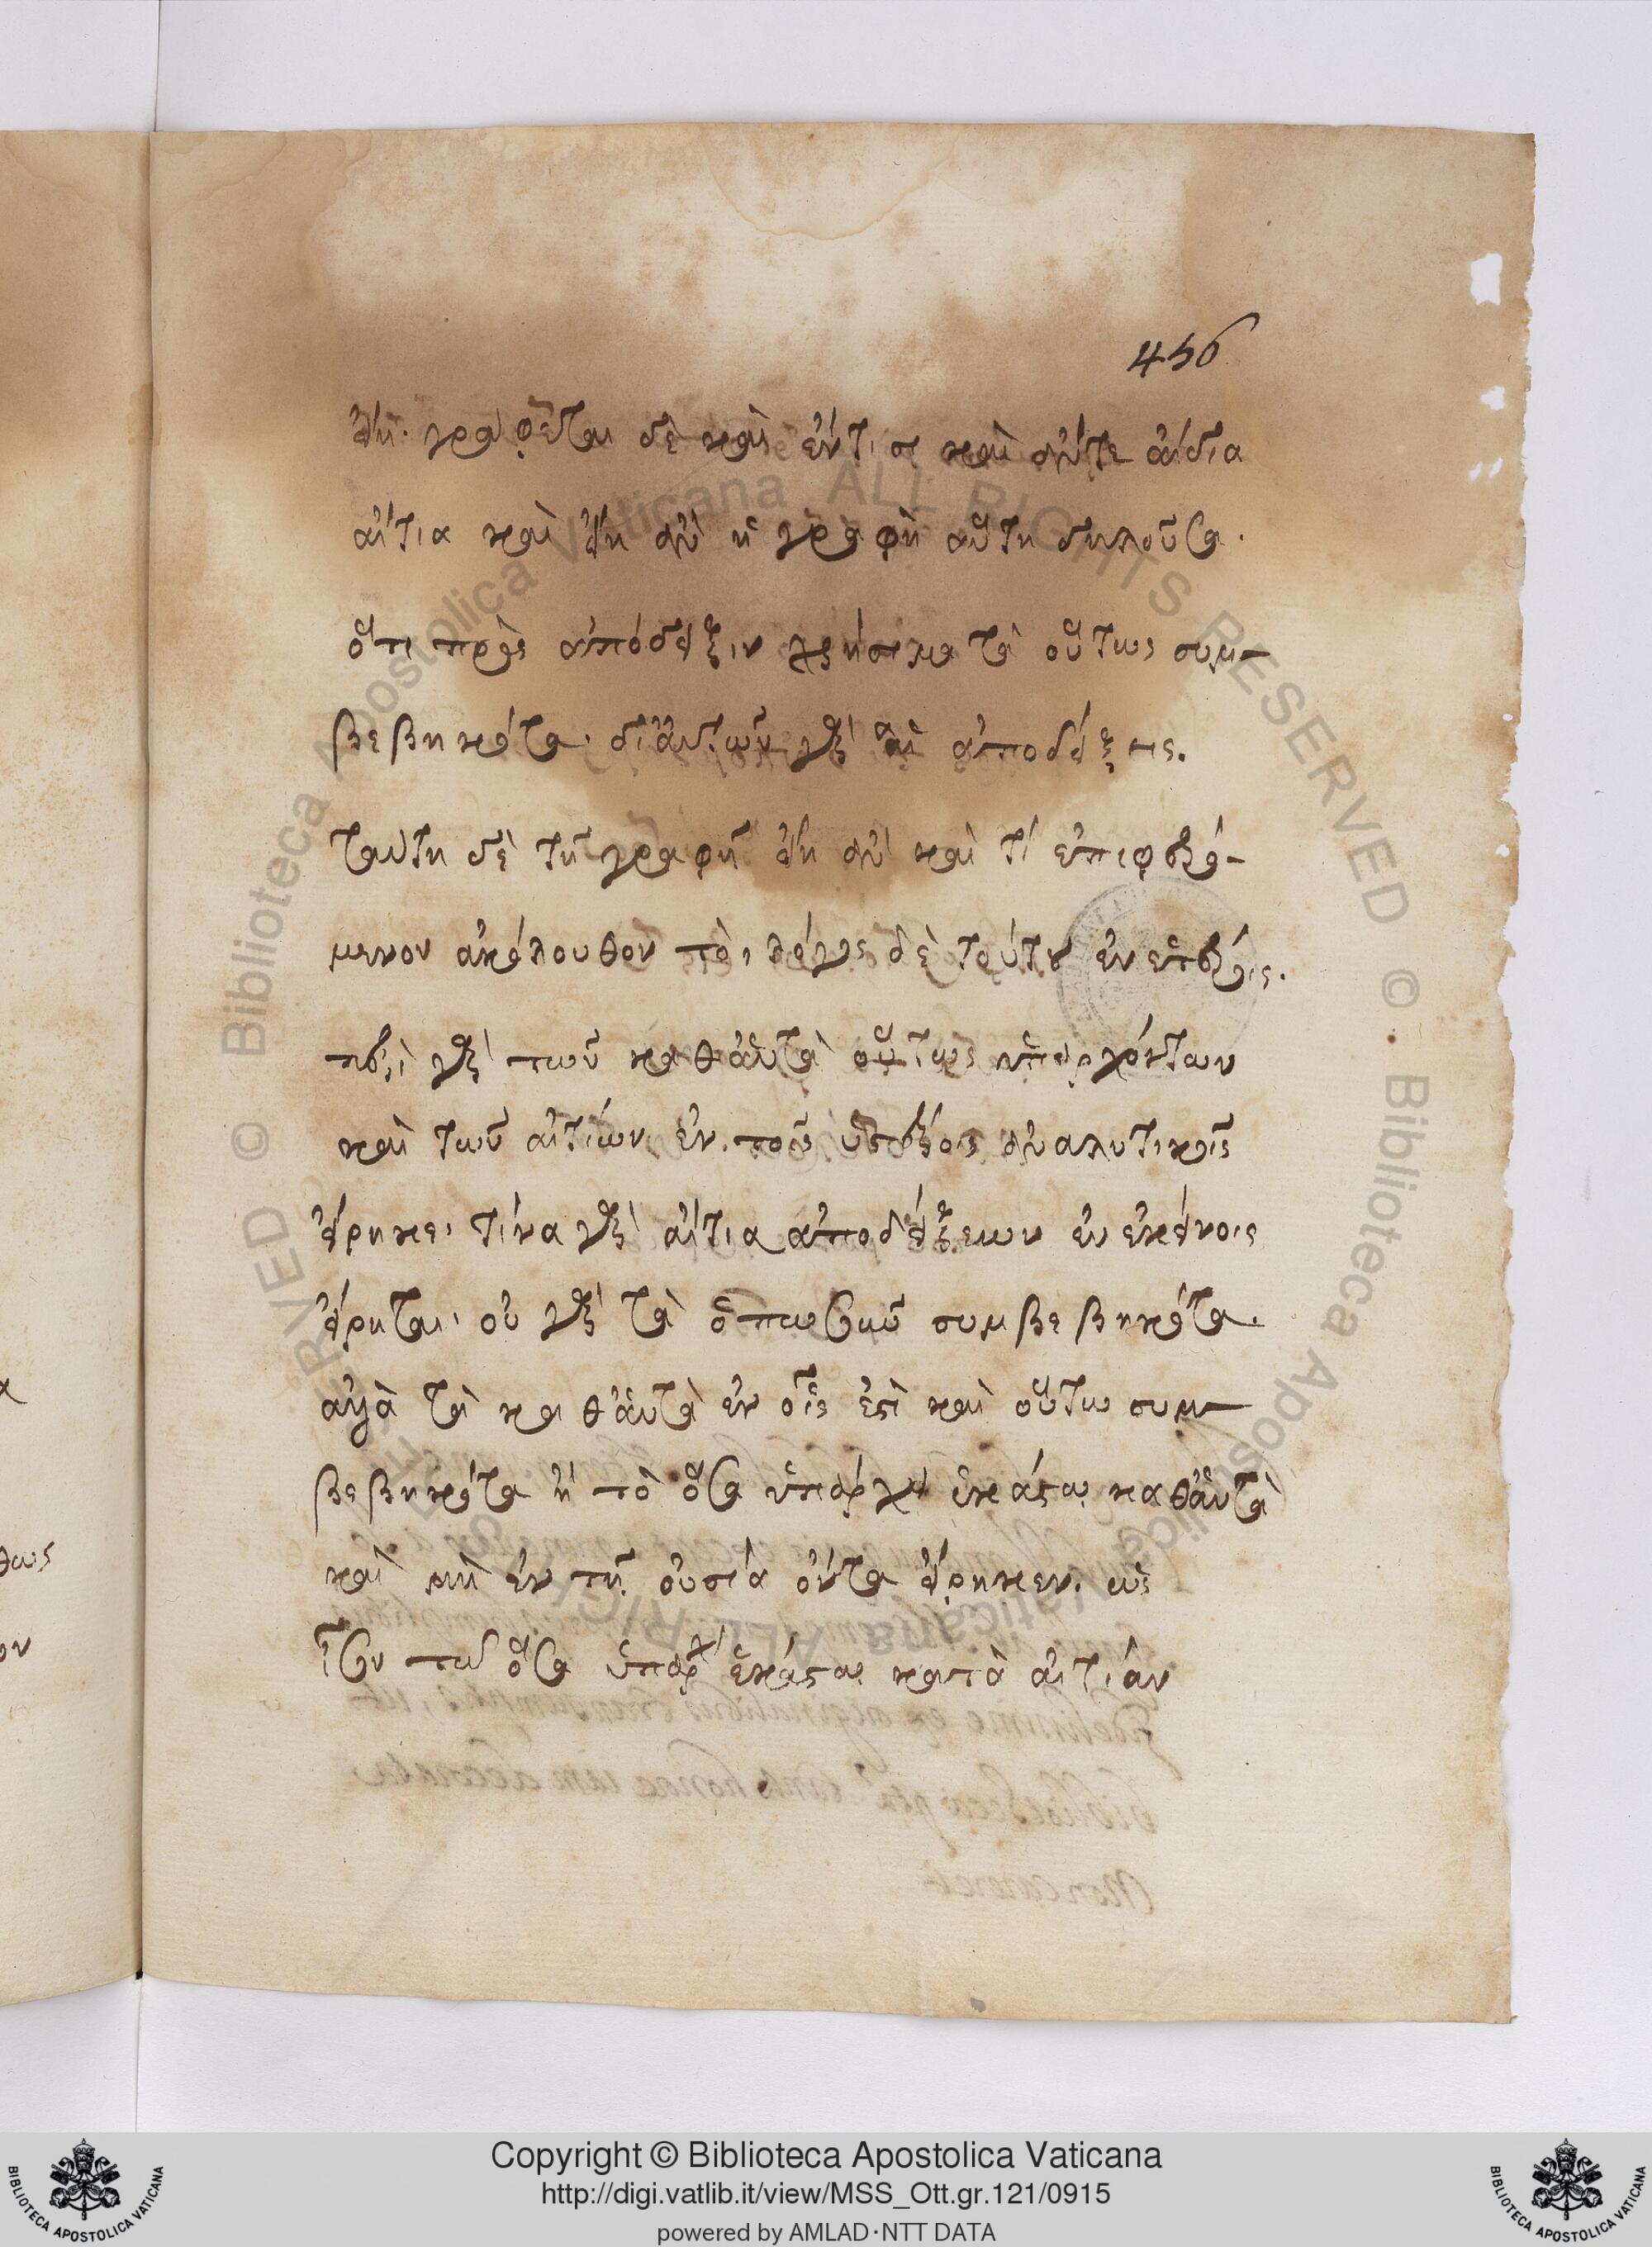 456
εἴη. γράφεται δὲ καὶ ἔν τισι καὶ αὐτὰ ἀΐδια
αἴτια καὶ εἴη ἂν ἡ γραφὴ αὕτη δηλοῦσα.
ὅτι πρὸς ἀπόδειξιν χρήσιμα τὰ οὕτως συμ-
βεβηκότα. δι' αὐτῶν γὰρ αἱ ἀποδείξεις.
ταύτη δὲ τῆ γραφῆ εἴη ἂν καὶ τὸ ἐπιφερό-
μενον ἀκόλουθον τὸ, λόγος δὲ τούτου ἐν ἑτέροις.
περὶ γὰρ τῶν καθ' αὑτὰ οὕτως ὑπαρχόντων
καὶ τῶν αἰτίων ἐν τοῖς ὑστέροις ἀναλυτικοῖς
εἴρηκε, τίνα γὰρ αἴτια ἀποδείξεων ἐν ἐκείνοις
εἴρηται, οὐ γὰρ τὰ ὁπωσοῦν συμβεβηκότα.
ἀλλὰ τὰ καθ' αὑτὰ ἐν οἷς ἐστὶ καὶ οὕτω συμ-
βεβηκότα ἢ τὸ ὅσα ὑπάρχει ἑκάστω καθ' αὑτὰ
καὶ μὴ ἐν τῆ οὐσία ὄντα εἴρηκεν. ὡς
ἴσον τῶ ὅσα ὑπάρχει ἑκάστω κατὰ αἰτίαν
Copyright © Biblioteca Apostolica Vaticana
http://digi.vatlib.it/view/MSS_Ott.gr.121/0915
powered by AMLAD·NTT DATA
BIBLIOTECA APOSTOLICA VATICANA
BIBLIOTECA APOSTOLICA VATICANA